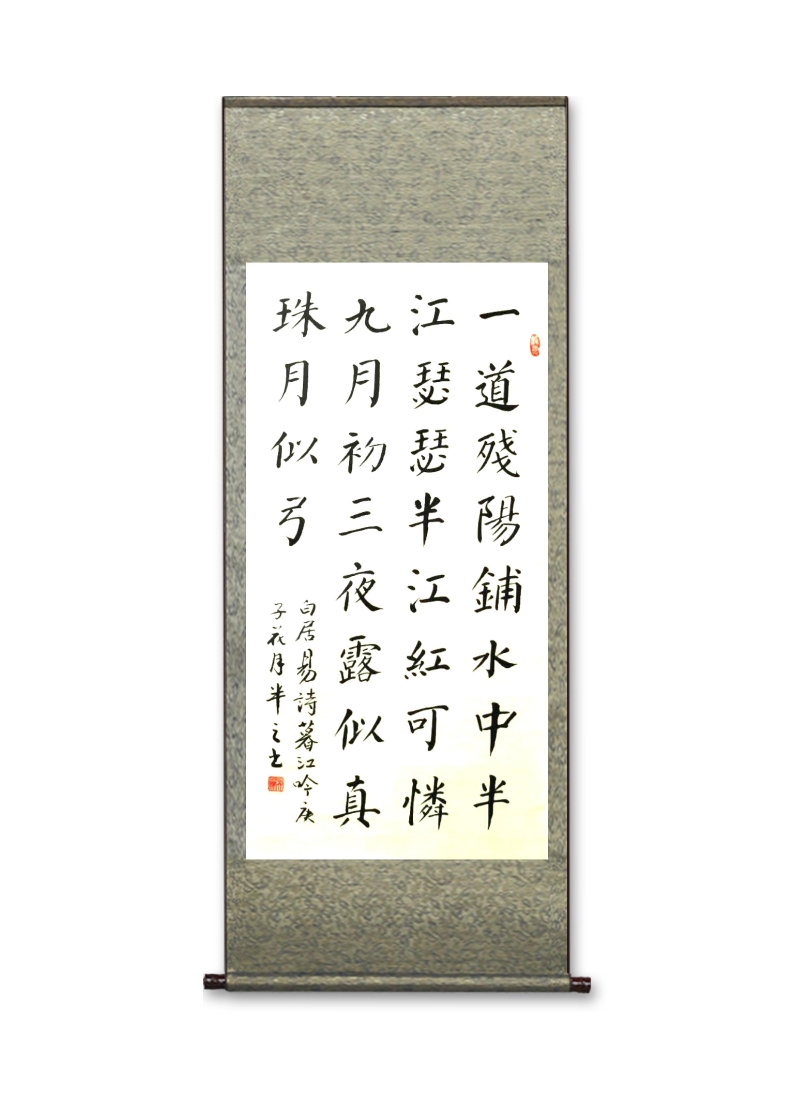 一道殘陽鋪水中半
江瑟瑟半江紅可憐
九月初三夜露似真
珠月似弓
白居易詩暮江吟庚
子花月半之士